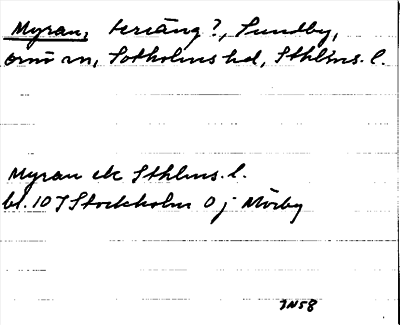 Myran, teräng?, Sundby,
ornö sn, Sotholms hd, Sthlms. l.
Myran ek Sthlms. l.
bl. 10 J Stockholm O j Mörby
JN58